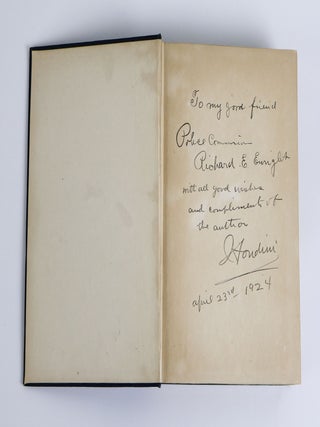 To my good friend
Police Commission
Richard E. Enright
with all good wishes
and compliments of
the author
Houdini
april 23rd 1924